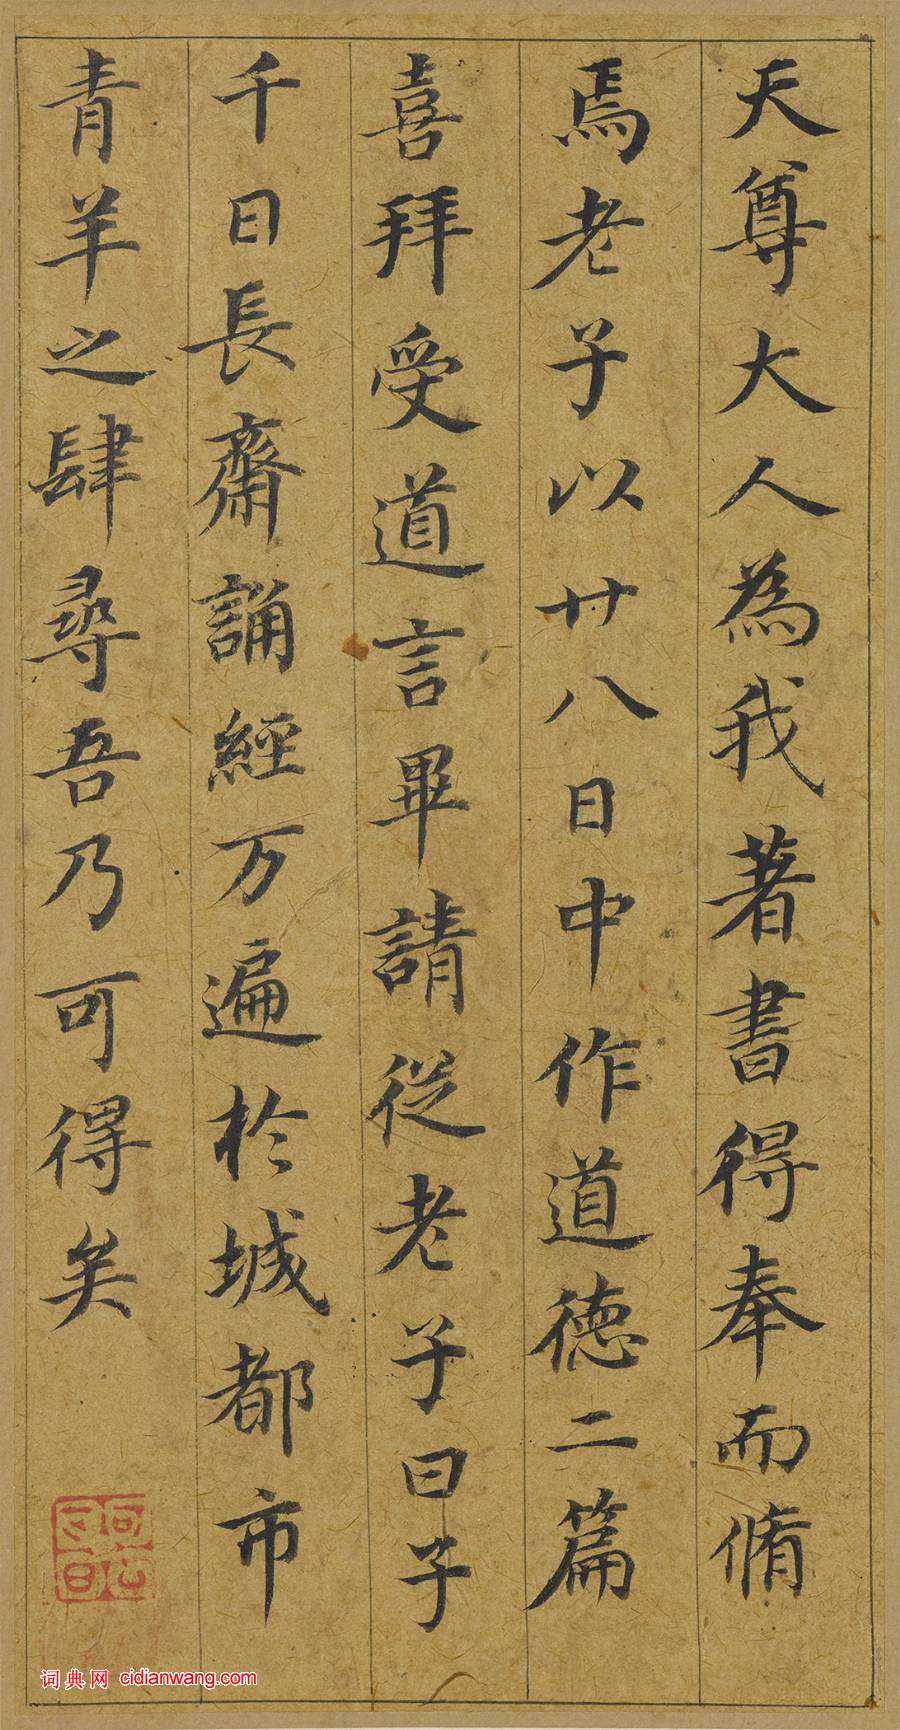 天尊大人為我著書得奉而脩
焉老子以廿八日中作道徳二篇
喜拜受道言畢請從老子曰子
千日長齋誦經万遍於城都市
青羊之肆尋吾乃可得矣
词典网 cidianwang.com